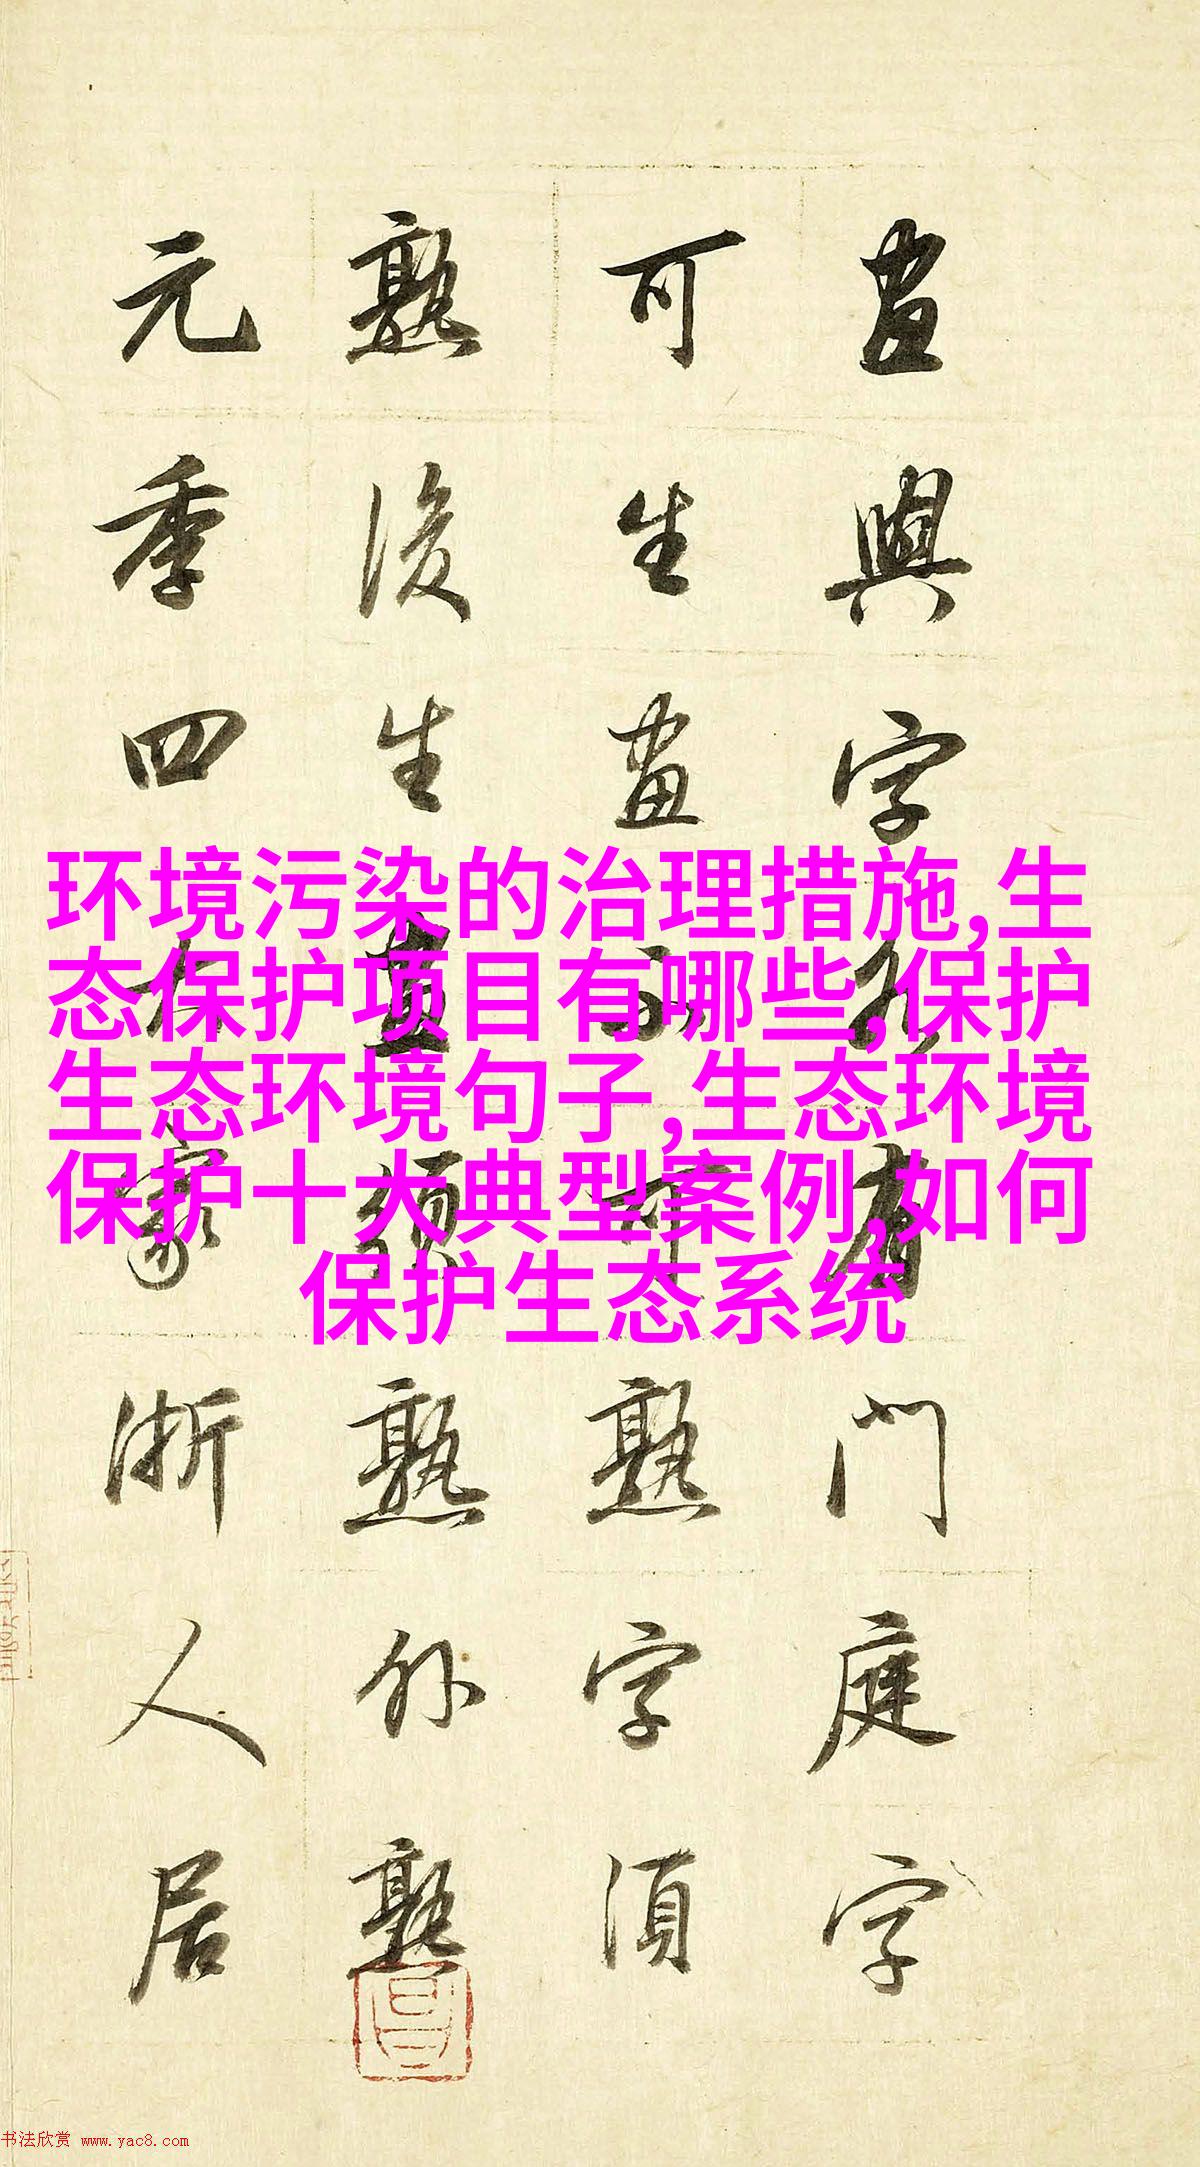 畫與字各有門庭字
可生畫不可熟字須
熟後生畫須熟外熟
元季四大家浙人居
环境污染的治理措施,生
态保护项目有哪些,保护
生态环境句子,生态环境
保护十大典型案例,如何
保护生态系统
书法欣赏 www.yac8.com